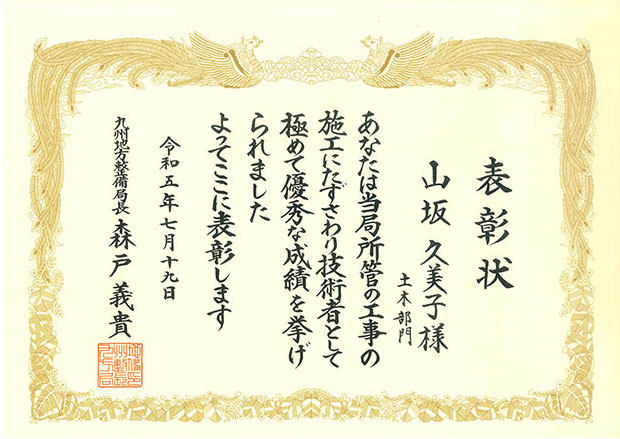 表彰状
山坂久美子様
土木部門
あなたは当局所管の工事の
施工にたずさわり技術者として
極めて優秀な成績を挙げ
られました
よってここに表彰します
令和五年七月十九日
九州地方整備局長 森戸義貴